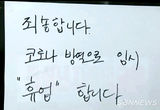 죄송합니다.
코로나 방역으로 임시
"휴업" 합니다